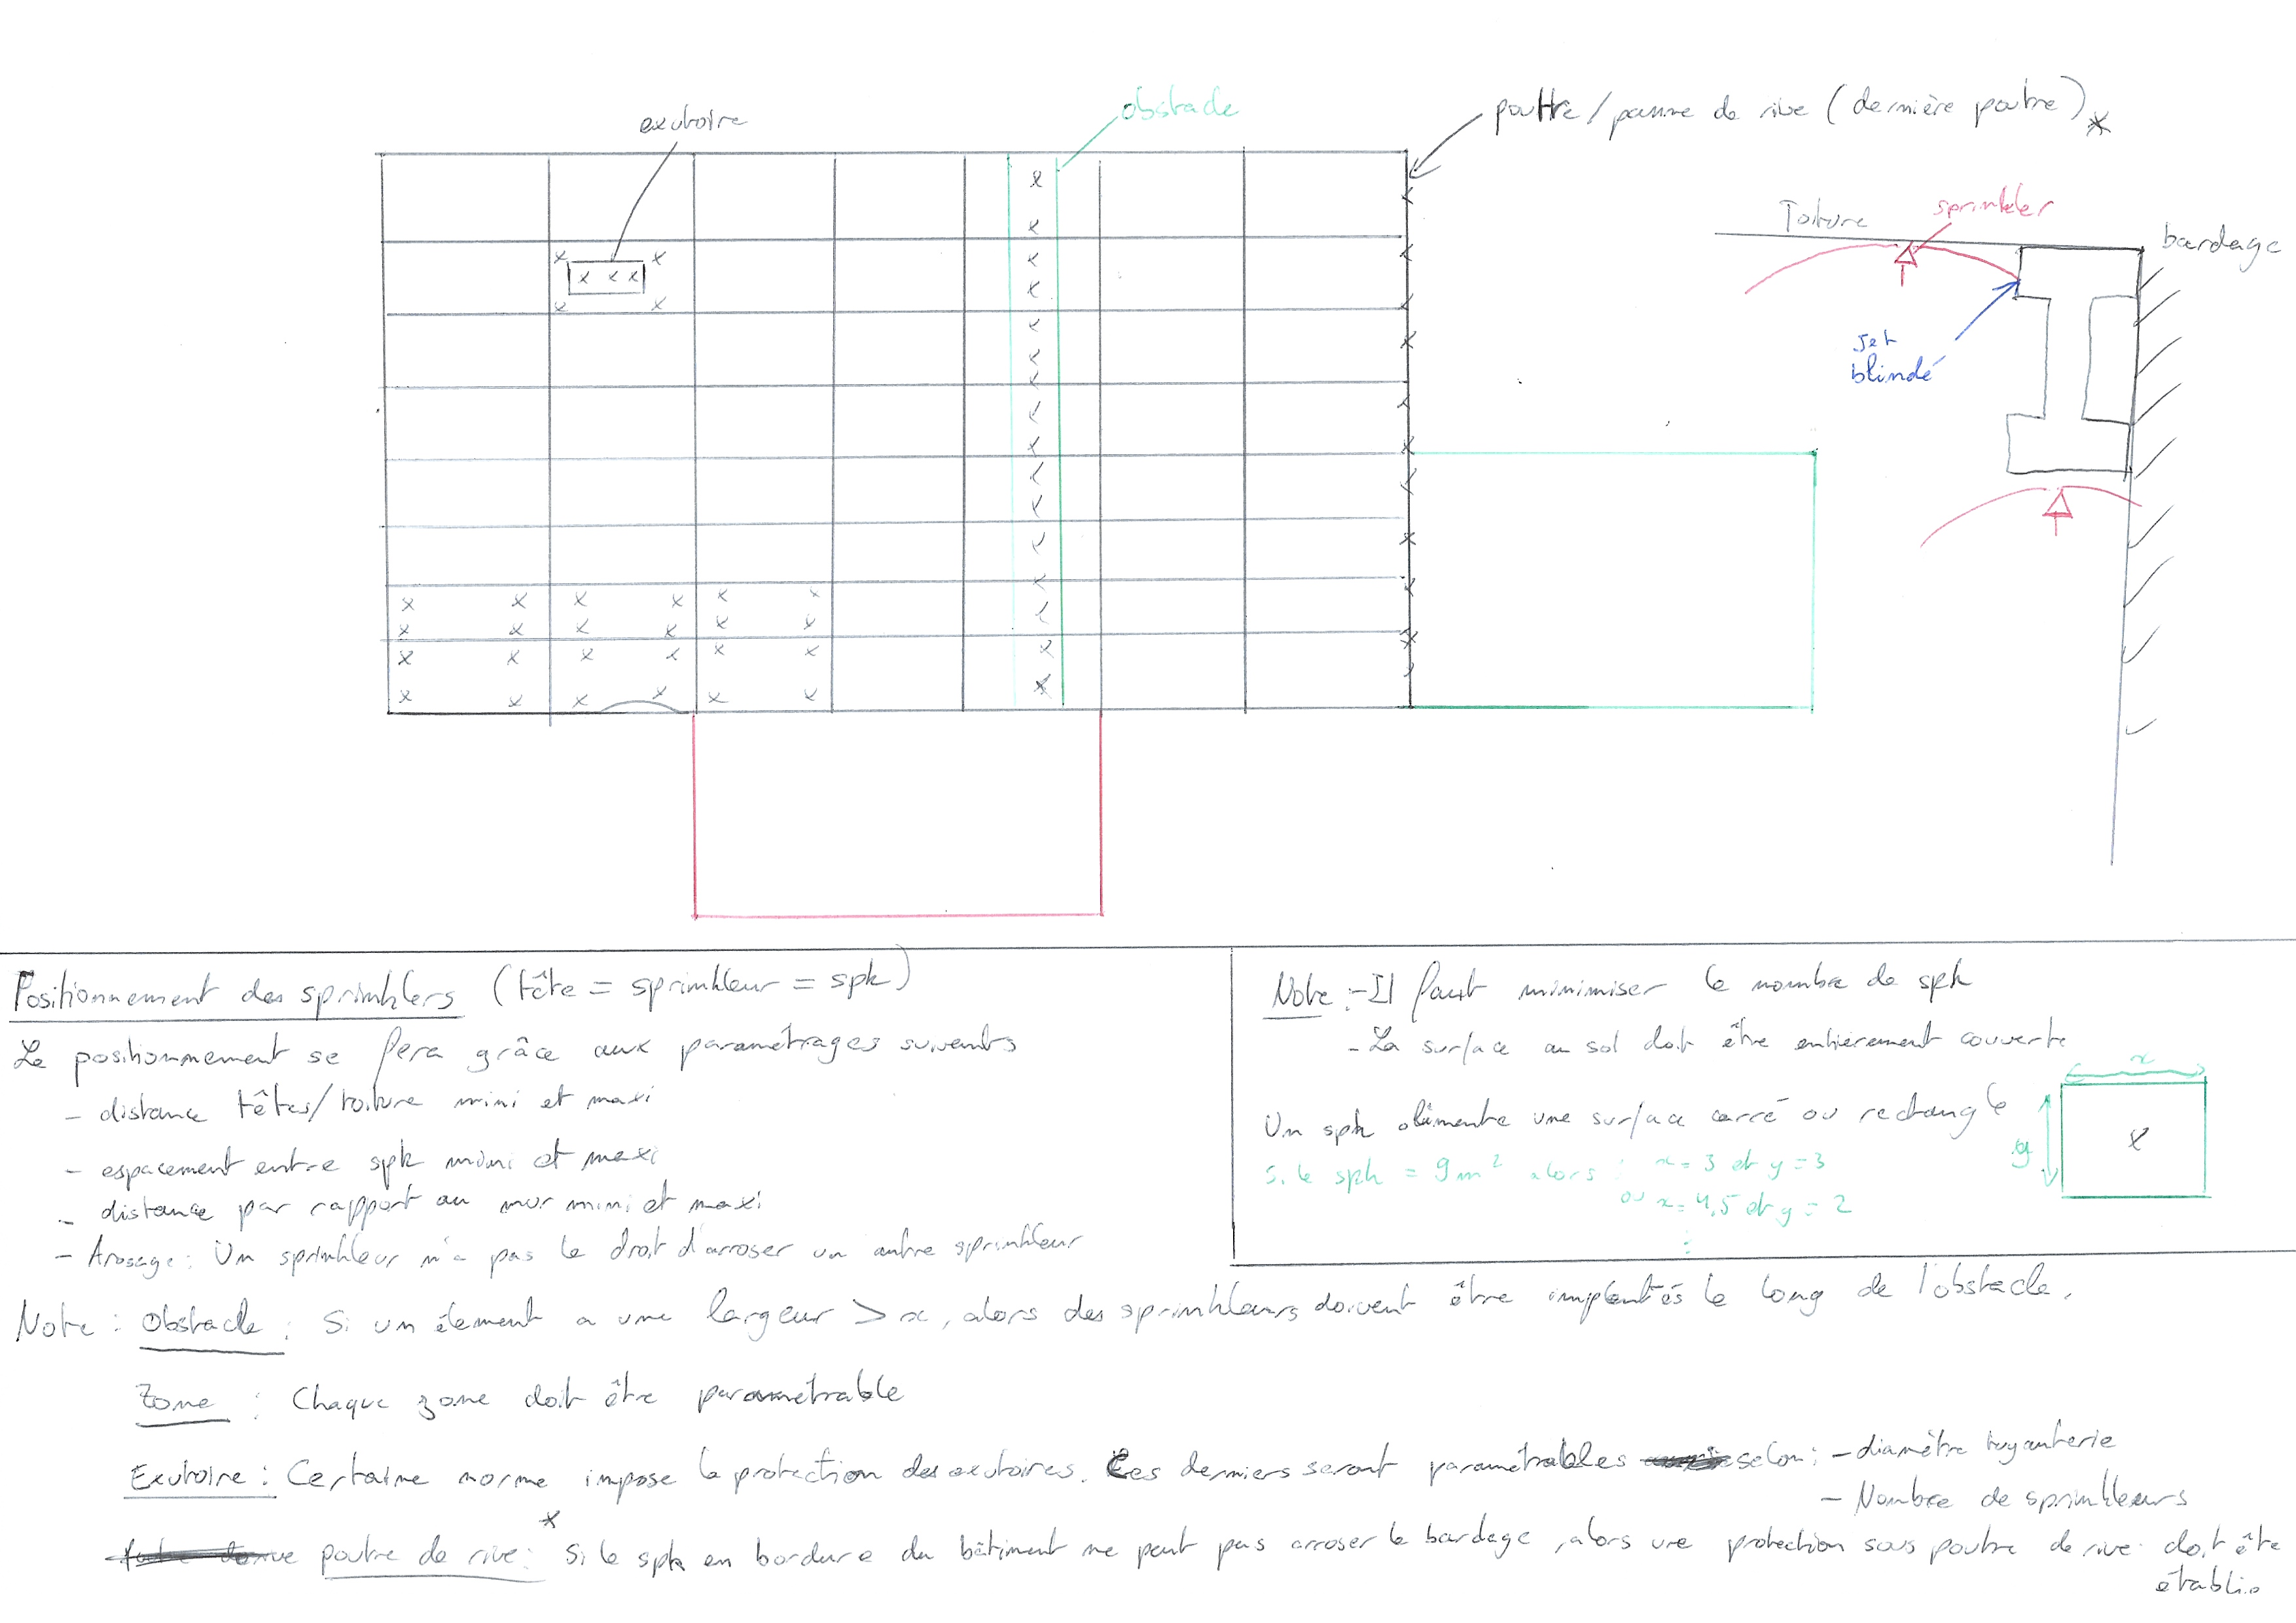 exutoire
obstacle
pouttre / panne de rive (dernière poutre) *
Toiture
sprinkler
bardage
Jet
blindé
Positionnement des sprinklers (tête = sprinkleur = spk)
Le positionnement se fera grâce aux paramétrages suivants
- distance têtes/toiture mini et maxi
- espacement entre spk mini et maxi
- distance par rapport au mur mini et maxi
- Arosage : Un sprinkleur n'a pas le droit d'arroser un autre sprinkleur
Note : - Il faut minimiser le nombre de spk
- La surface au sol doit être entièrement couverte
Un spk alimente une surface carré ou rectangle
Si le spk = 9m² alors : x = 3 et y = 3
ou x = 4,5 et y = 2
x
y
Note : Obstacle : Si un élement a une largeur > x, alors des sprinkleurs doivent être implentés le long de l'obstacle.
Zone : Chaque zone doit être parametrable
Exutoire : Certaine norme impose la protection des exutoires. Ces derniers seront paramétrables selon : - diamètre tuyauterie
- Nombre de sprinkleurs
poutre de rive * : Si le spk en bordure du bâtiment ne peut pas arroser le bardage, alors une protection sous poutre de rive doit être
établie